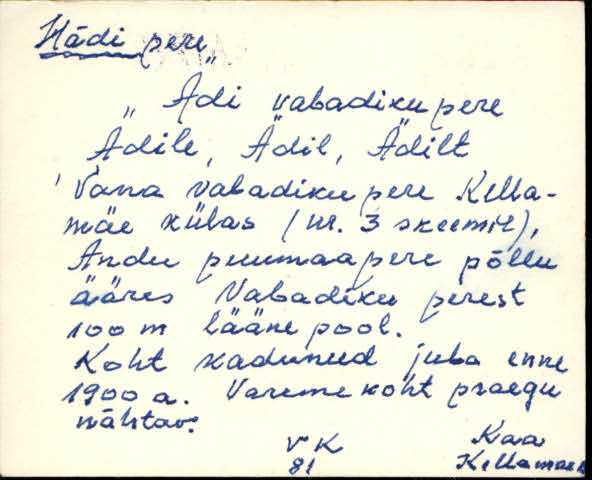 Hädi pere
Ädi vabadikupere
Ädile, Ädil, Ädilt
Vana vabadikupere Kella-
mäe külas (nr. 3 skeemil),
Andu puumaapere põllu
ääres Vabadiku perest
100 m lääne pool.
Koht kadunud juba enne
1900 a. Vareme koht praegu
nähtav.
VK Kaa
81 Kellamäe